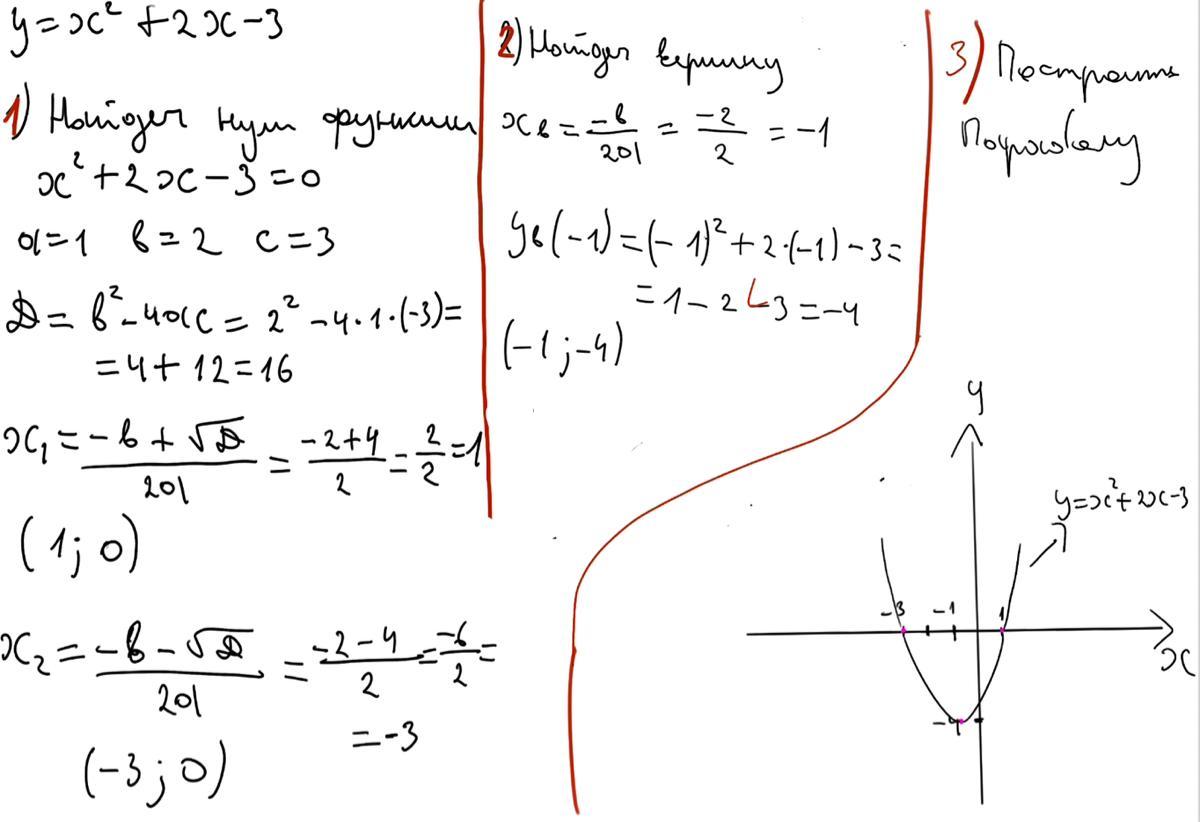 y=x²+2x-3
1) Найдем нули функции
x²+2x-3=0
a=1 в=2 c=3
D=в²-4ac=2²-4·1·(-3)=
=4+12=16
x₁=(-в+√D)/2a=(-2+4)/2=2/2=1
(1;0)
x₂=(-в-√D)/2a=(-2-4)/2=-6/2=
=-3
(-3;0)
2) Найдем вершину
xв=-в/2a=-2/2=-1
yв(-1)=(-1)²+2·(-1)-3=
=1-2-3=-4
(-1;-4)
3) Построить
Параболу
y
y=x²+2x-3
-3 -1 1
x
-4